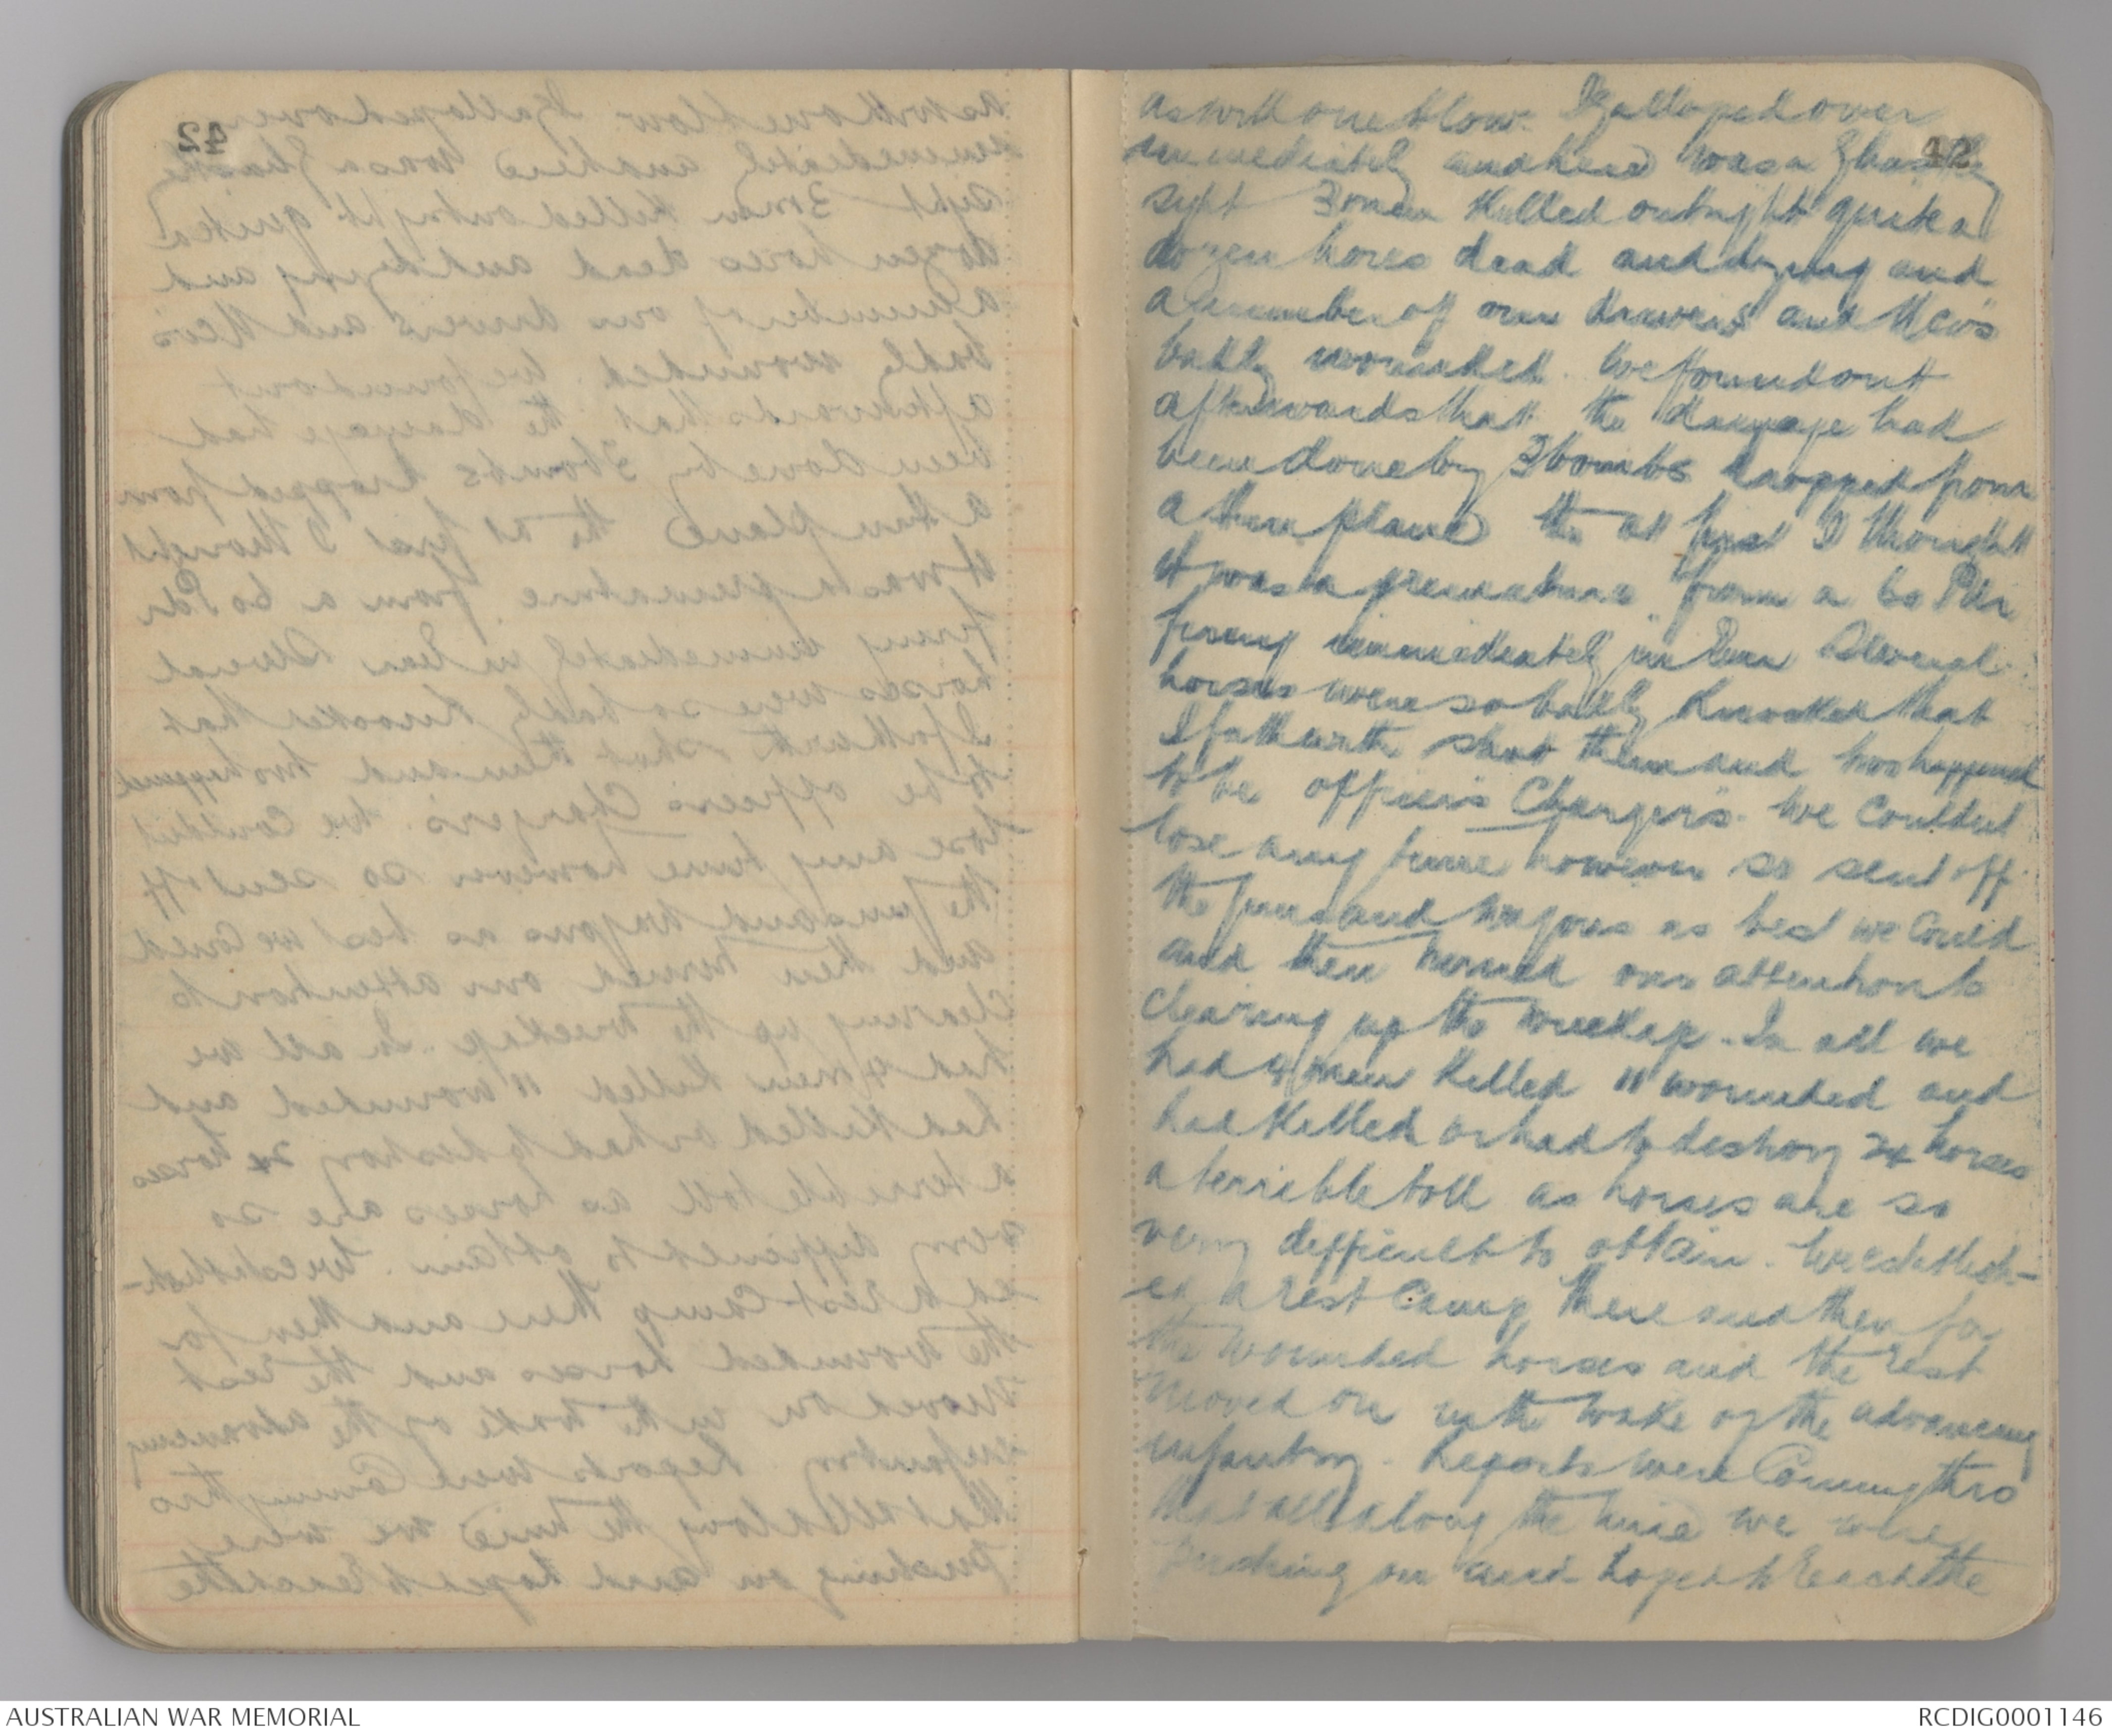 42
as with one blow. I galloped over
immediately and here was a ghastly
sight 3 men killed outright quite a
dozen horses dead and dying and
a number of our drivers and Nco's
badly wounded. We found out
afterwards that the damage had
been done by 3 bombs dropped from
a Hun plane tho at first I thought
it was a premature from a 60 Pdr
firing immediately in rear Several
horses were so badly knocked that
I forthwith shot them and two happened
to be officers Chargers. We couldnt
lose any time however so sent off
the guns and wagons as best we could
and then turned our attention to
clearing up the wreckage. In all we
had 4 men killed 11 wounded and
had killed or had to destroy 24 horses
a terrible toll as horses are so
very difficult to obtain. We establish-
ed a rest camp there and then for
the wounded horses and the rest
moved on in the wake of the advancing
infantry. Reports were coming thro
that all along the line we were
pushing on and hoped to reach the
AUSTRALIAN WAR MEMORIAL
RCDIG0001146